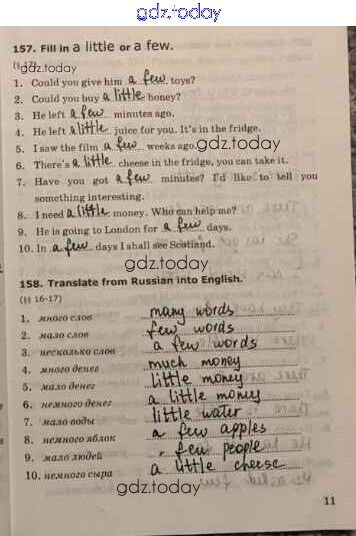 gdz.today
157. Fill in a little or a few.
gdz.today
1. Could you give him a few toys?
2. Could you buy a little honey?
3. He left a few minutes ago.
4. He left a little juice for you. It's in the fridge.
5. I saw the film a few weeks ago.
gdz.today
6. There's a little cheese in the fridge, you can take it.
7. Have you got a few minutes? I'd like to tell you
something interesting.
8. I need a little money. Who can help me?
9. He is going to London for a few days.
10. In a few days I shall see Scotland.
gdz.today
158. Translate from Russian into English.
(§§ 16-17)
1. много слов many words
2. мало слов few words
3. несколько слов a few words
4. много денег much money
5. мало денег little money
6. немного денег a little money
7. мало воды little water
8. немного яблок a few apples
9. мало людей few people
10. немного сыра a little cheese
gdz.today
11